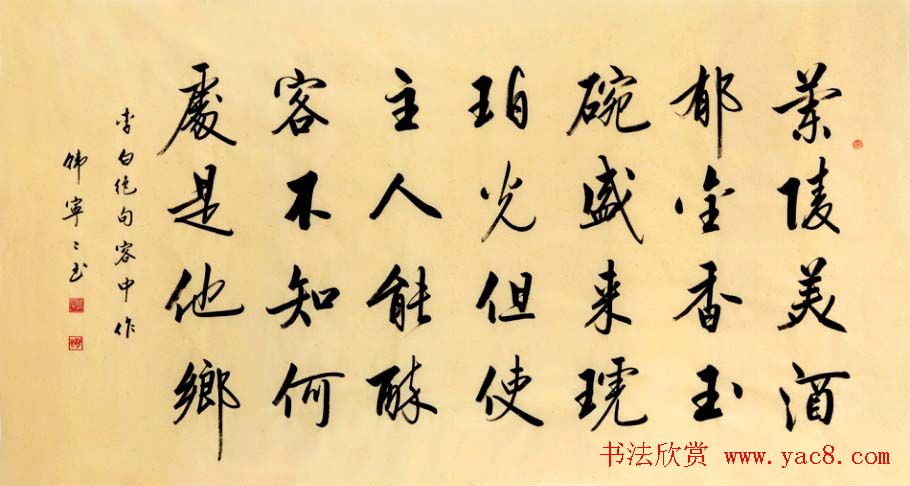 蘭陵美酒
郁金香玉
碗盛来琥
珀光但使
主人能醉
客不知何
處是他鄉
李白绝句客中作
韩寧〻书
书法欣赏 www.yac8.com